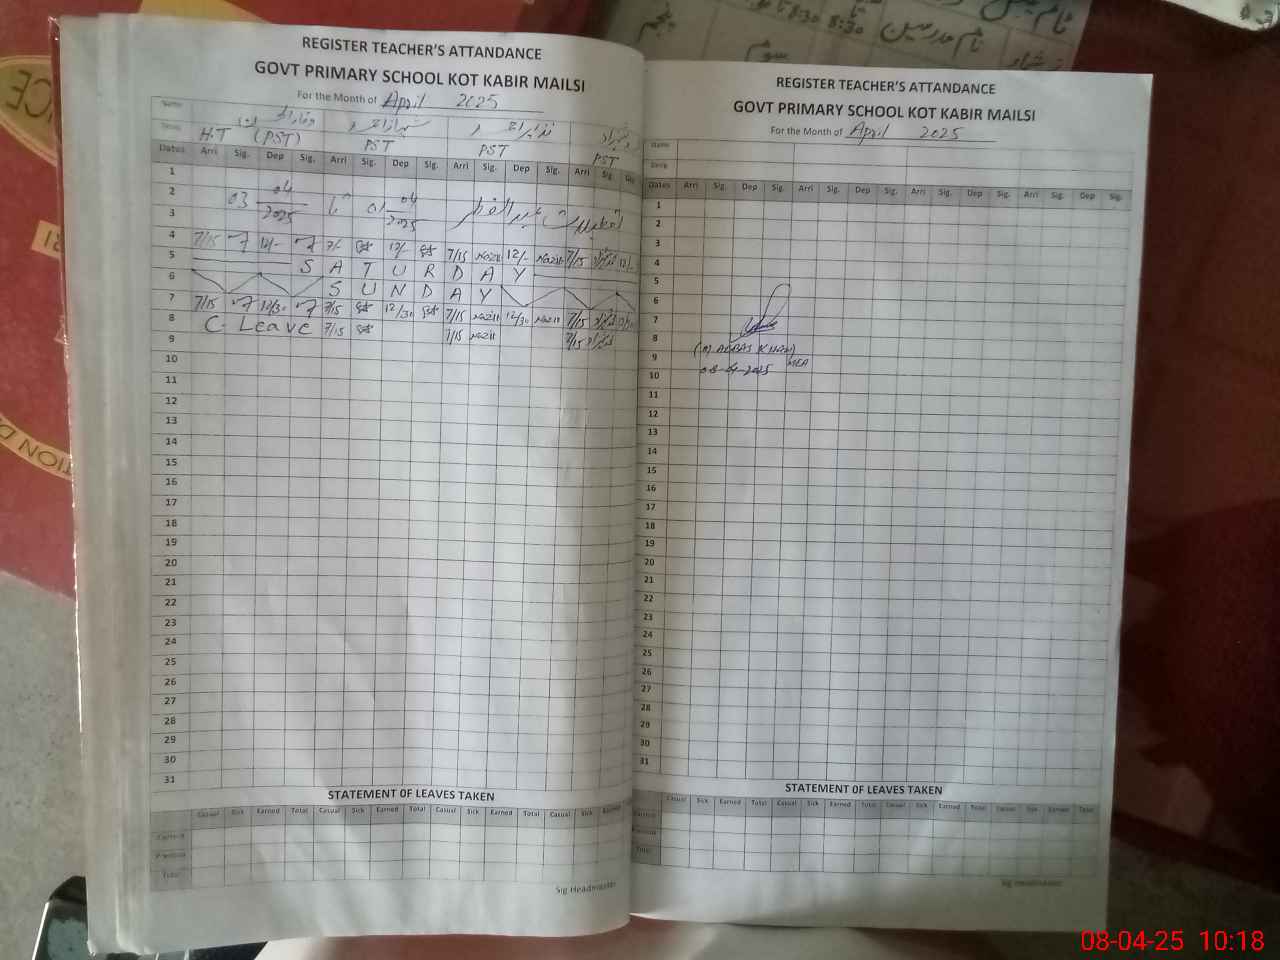 REGISTER TEACHER'S ATTANDANCE
GOVT PRIMARY SCHOOL KOT KABIR MAILSI
For the Month of April 2025
Name
H.T (PST) PST PST PST
Dates Arri Sig. Dep Sig. Arri Sig. Dep Sig. Arri Sig. Dep Sig. Arri Sig
1
2 03 04 2025 تا 01 04 2025 تعطیلات عید الفطر
3
4 7/15 12/- 7/- 12/- 7/15 Nazir 12/- Nazir 7/15 12/-
5 SATURDAY
6 SUNDAY
7 7/15 12/30 7/15 12/30 7/15 Nazir 12/30 Nazir 7/15
8 C-Leave 7/15 7/15 Nazir 7/15
9
10
11
12
13
14
15
16
17
18
19
20
21
22
23
24
25
26
27
28
29
30
31
STATEMENT OF LEAVES TAKEN
Casual Sick Earned Total Casual Sick Earned Total Casual Sick Earned Total Casual Sick Earned
Current
Previous
Total
Sig Headmaster
REGISTER TEACHER'S ATTANDANCE
GOVT PRIMARY SCHOOL KOT KABIR MAILSI
For the Month of April 2025
Name
Dates Arri Sig. Dep Sig. Arri Sig. Dep Sig. Arri Sig. Dep Sig. Arri Sig. Dep Sig.
1
2
3
4
5
6
7
8 (M ABBAS KHAN)
9 MEA
10 08-04-2025
11
12
13
14
15
16
17
18
19
20
21
22
23
24
25
26
27
28
29
30
31
STATEMENT OF LEAVES TAKEN
Casual Sick Earned Total Casual Sick Earned Total Casual Sick Earned Total Casual Sick Earned Total
Current
Previous
Total
Sig Headmaster
نام مدرسین
8:30
8:30
سوم
پنجم
08-04-25 10:18